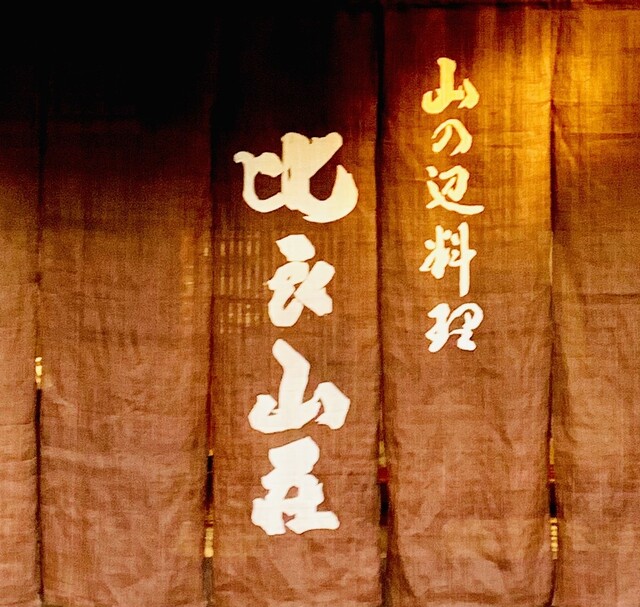 山の辺料理
比良山荘